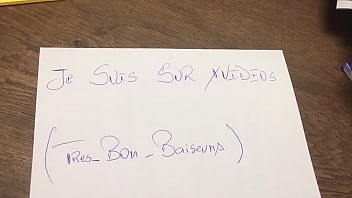 Je Suis SUR XVIDEOS
(TRES_BON_Baiseurs)